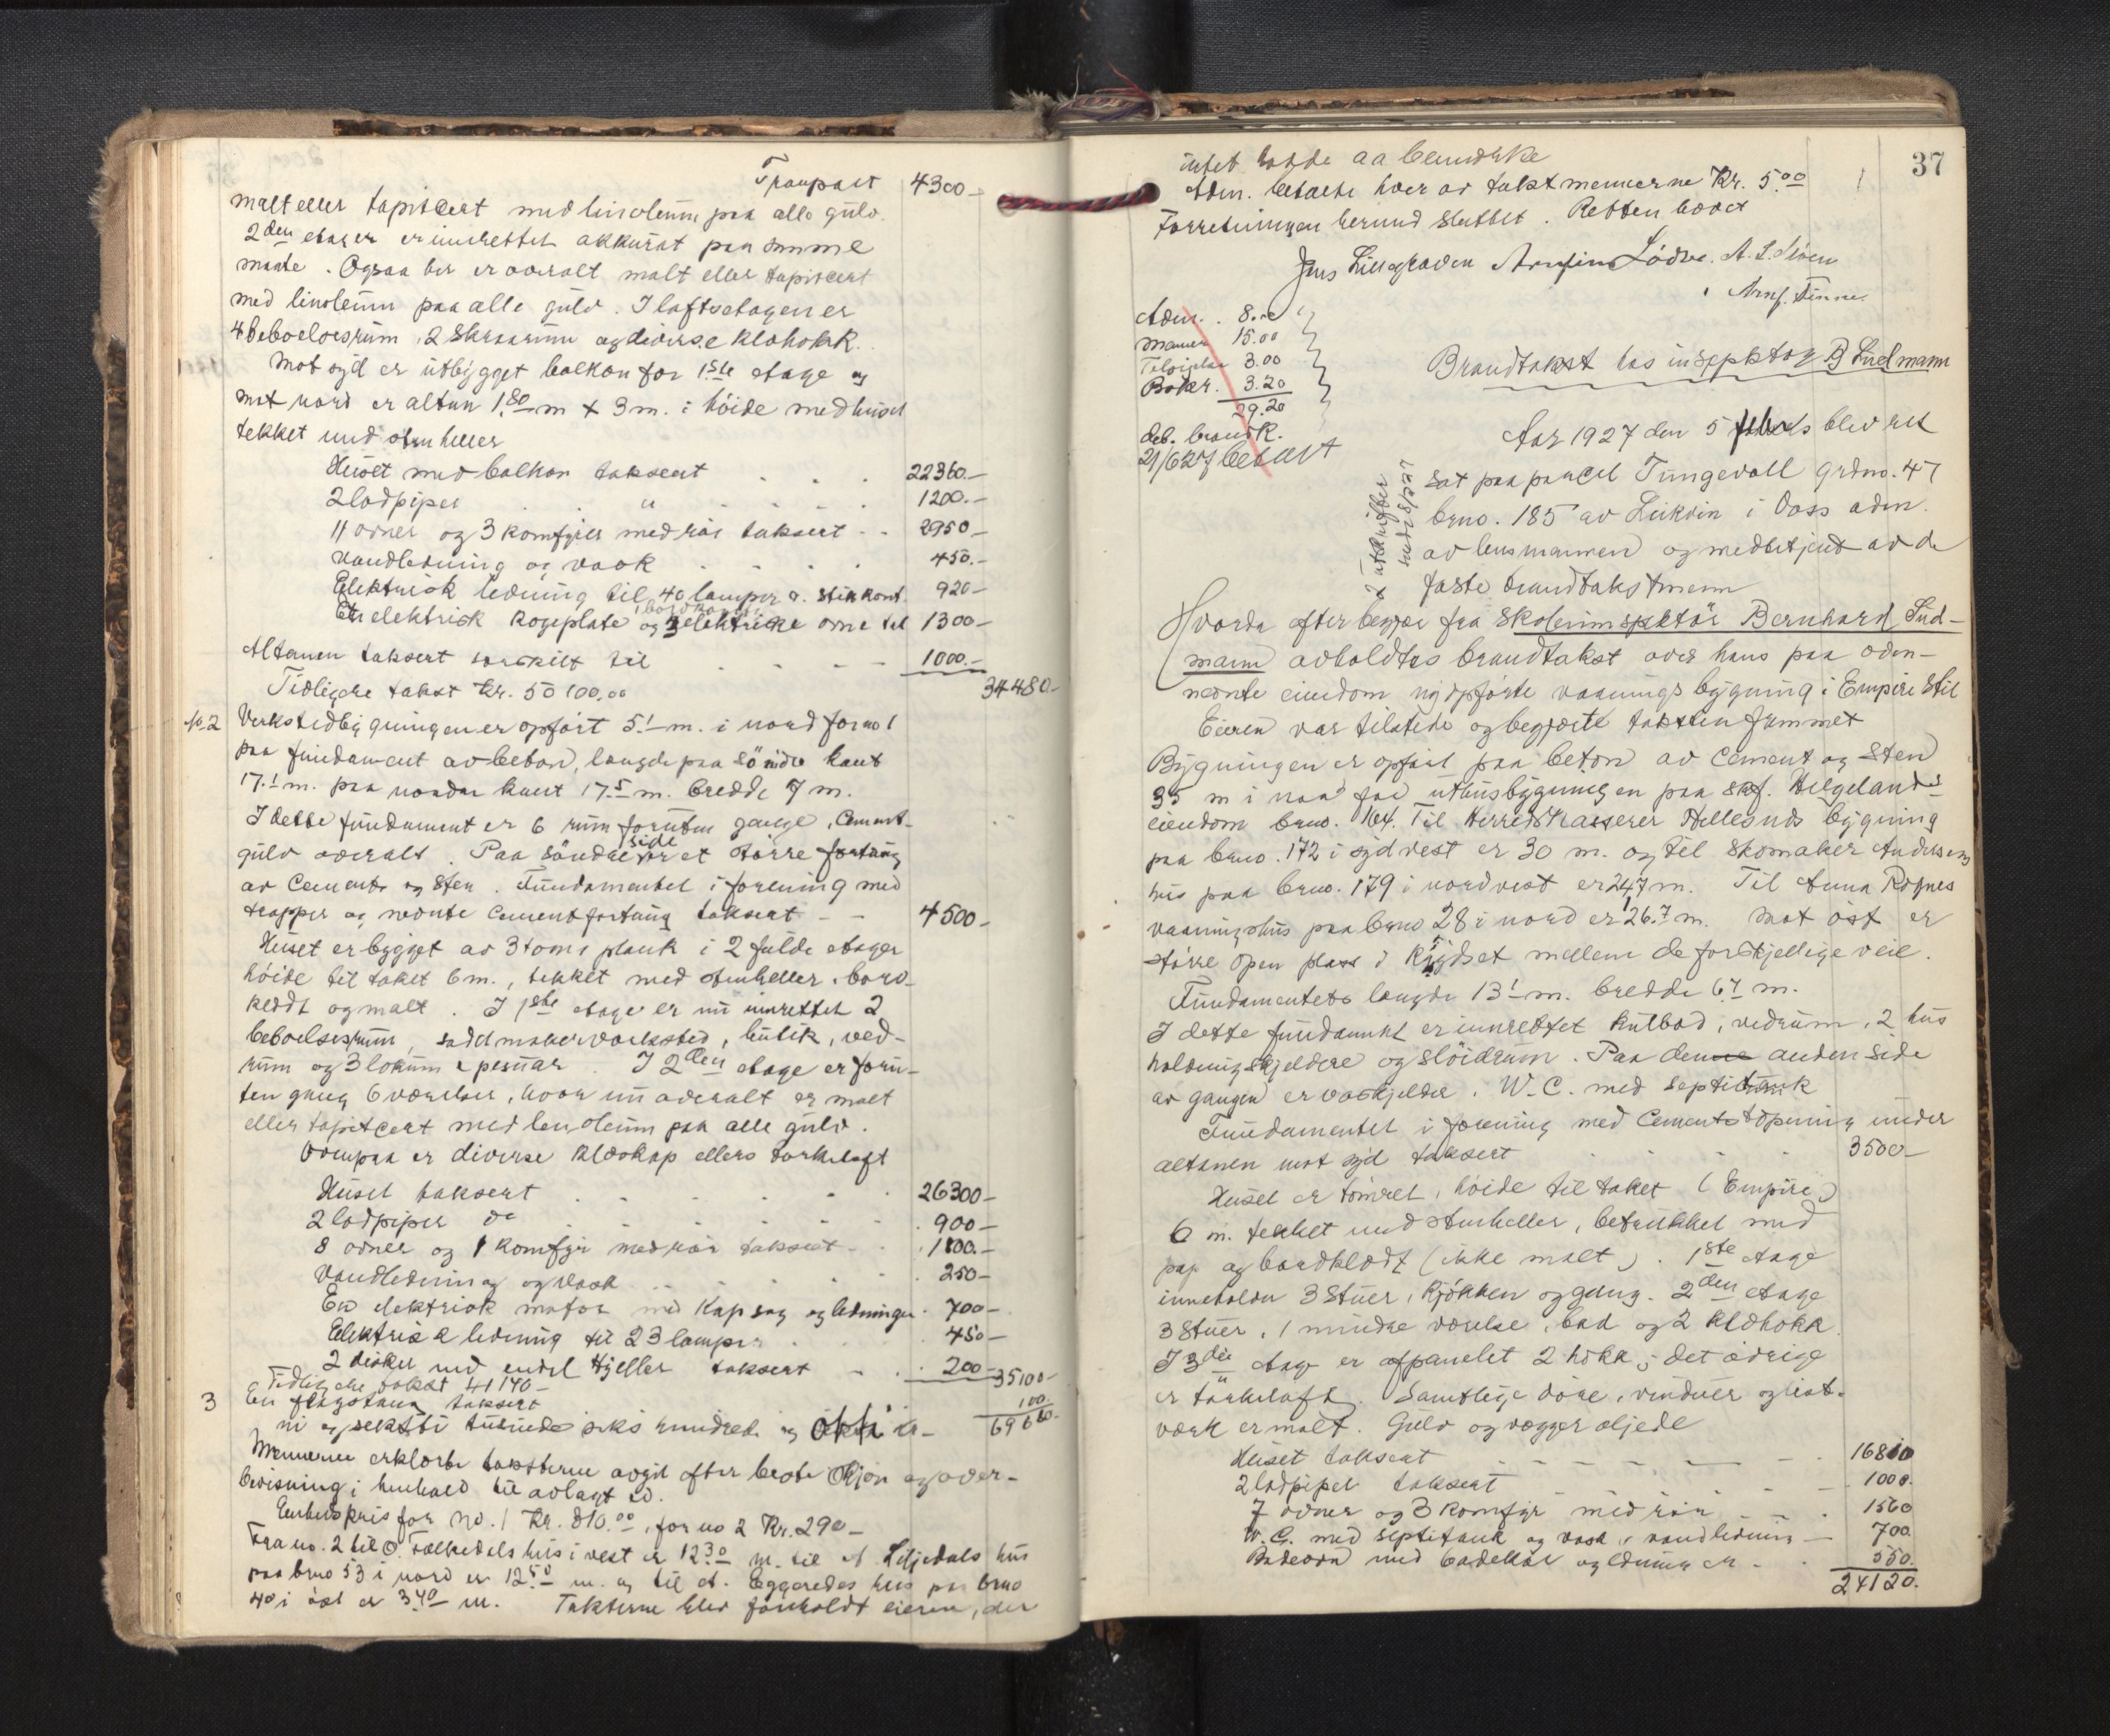 Transport 4300-
malt eller tapitcert med linoleum paa alle gulv.
2den etager er innrettet akkurat paa samme
maate. Ogsaa her er overalt malt eller tapitcert
med linoleum paa alle gulv. I loftsetagen er
4 beboelsesrum, 2 skraarum og diverse klohokk.
Mot syd er utbygget balkon for 1ste etage og
mot nord er altan 1.80 m x 3 m. i höide med huset
tekket med stenheller
Huset med balkon taksert 22360.-
2 lodpiper " 1200.-
11 ovner og 3 komfyrer med rör taksert 2950-
Vandledning og vask 450.-
Elektrisk ledning til 40 lamper o. stikkont. 920-
En elektrisk kogeplate og 3 elektriske ovne til 1300-
Altanen taksert særskilt til 1000.-
Tidligere takst kr. 50100,00 34480-
No. 2 Verkstedbygningen er opfört 5.1 m. i nord for no 1
paa fundament av beton, længde paa söndre kant
17.1 m. paa nordre kant 17.5 m. bredde 7 m.
I dette fundament er 6 rum foruten gange, Cement-
gulv overalt. Paa söndre side er et större fortaug
av Cement og Sten. Fundamentet i forening med
trapper og nevnte Cementfortaug taksert 4500-
Huset er bygget av 3 toms plank i 2 fulde etager
höide til taket 6 m., tekket med stenheller, bord-
kledt og malt. I 1ste etage er nu innrettet 2
beboelsesrum, sadelmakerverksted, butik, ved-
rum og 3 lokum & pesuar. I 2den etage er foru-
ten gang 6 værelser, hvor nu overalt er malt
eller tapitcert med lenoleum paa alle gulv.
Ovenpaa er diverse klæskap ellers törkeloft
Huset taksert 26300-
2 lodpiper do 900-
8 ovner og 1 komfyr med rör taksert 1100.-
Vandledning og vask 250-
En elektrisk motor med Kapsag og ledninger 700-
Elektrisk ledning til 23 lamper 450-
2 disker med endel Hyller taksert 200- 35100-
Tidligere takst 41140-
3 En flagstang taksert 100.
ni og seksti tusinde seks hundrede og otti kr- 69680-
Mennene erklærte taksterne avgit efter beste skjön og over-
bevisning i henhold til avlagt ed.
Enhetspris for no. 1 Kr. 810.00, for no 2 Kr. 290-
Fra no. 2 til O. Tælkedals hus i vest er 12.30 m. til A. Liljedals hus
paa brno 53 i nord er 12.50 m. og til A. Eggeredes hus paa brno
40 i öst er 3.40 m. Taksterne blev foreholdt eieren, der
37
intet hadde aa bemerke
Adm. betalte hver av takstmennerne Kr. 5.00
Forretningen herund sluttet. Retten hævet
Jens Lillegraven Arnfinn Lødve. A. L. Kløven
Arnf. Finne.
Adm. 8.00
Mænner 15.00
Tilsigelse 3.00
Beker. 3.20
29.20
deb. brandk.
21/6 27 betalt
Brandtakst hos inspektör B Sudmann
Aar 1927 den 5 febr blev ret
sat paa parcel Tungevoll grdno. 47
brno. 185 av Leikvin i Voss adm.
av lensmannen og medbetjent av de
faste brandtakstmenn
2 utskrifter
Hvorda efter begjær fra Skoleinspektör Bernhard Sud-
mann avholdtes brandtakst over hans paa oven-
nevnte eiendom nyopförte vaanings bygning i Empire Stil
Eieren var tilstede og begjærte taksten fremmet
Bygningen er opfört paa beton av Cement og Sten
35 m i nord for uthusbygningen paa skf. Helgelands
eiendom brno. 164. Til Herredskasserer Hellesnds bygning
paa brno. 172 i sydvest er 30 m. og til Skomaker Andersens
hus paa brno. 179 i nordvest er 24,7 m. Til Anna Rognes
vaaningshus paa brno 28 i nord er 26.7 m. Mot öst er
större open plass i Krydset mellem de forskjellige veie.
Fundamentets længde 13.1 m. bredde 6.7 m.
I dette fundament er innrettet kulbod, vedrum, 2 hus
holdningskjeldere og slöidrum. Paa denne anden side
av gangen er vaskjelder, W. C. med septitank
Fundamentet i forening med Cementstöpning under
altanen mot syd taksert 3500-
Huset er tömret, höide til taket (Empire)
6 m. tekket med stenheller, betrukket med
pap og bordklædt (ikke malt). 1ste etage
inneholder 3 Stuer, Kjökken og gang. 2den etage
3 Stuer, 1 mindre værelse, bad og 2 klohokk.
I 3die etage er afpanelet 2 hokk, det övrige
er törkeloft. Samtlige döre, vinduer og list-
værk er malt. Gulv og vægger oljede
Huset taksert 16810
2 lodpiper taksert 1000.
7 ovner og 3 komfyr med rör 1560
W. C. med septitank og vask, vandledning 700
Badeovn med badekar og ledning 550.
24120.